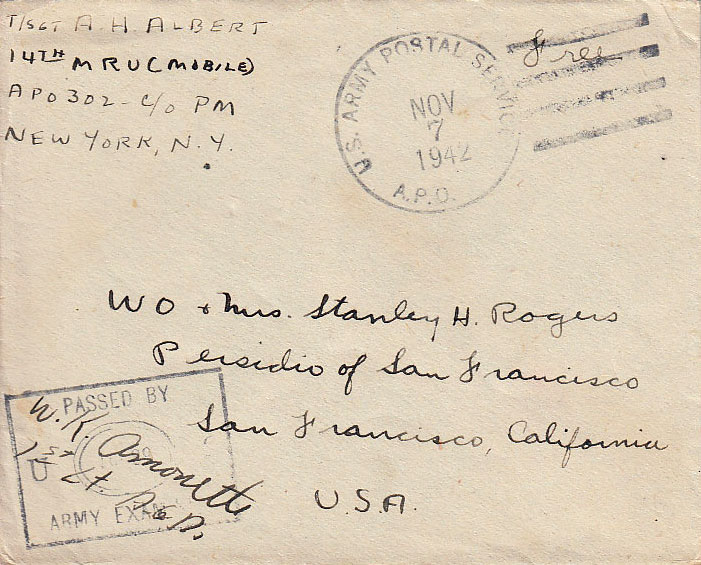 T/SGT A. H. ALBERT
14TH MRU (MOBILE)
APO 302 - C/O PM
NEW YORK, N.Y.
U.S. ARMY POSTAL SERVICE
NOV
7
1942
A.P.O.
Free
WO + Mrs. Stanley H. Rogers
Persidio of San Francisco
San Francisco, California
U.S.A.
PASSED BY
U S
ARMY EXAM
W. K. Amonette
1st Lt.